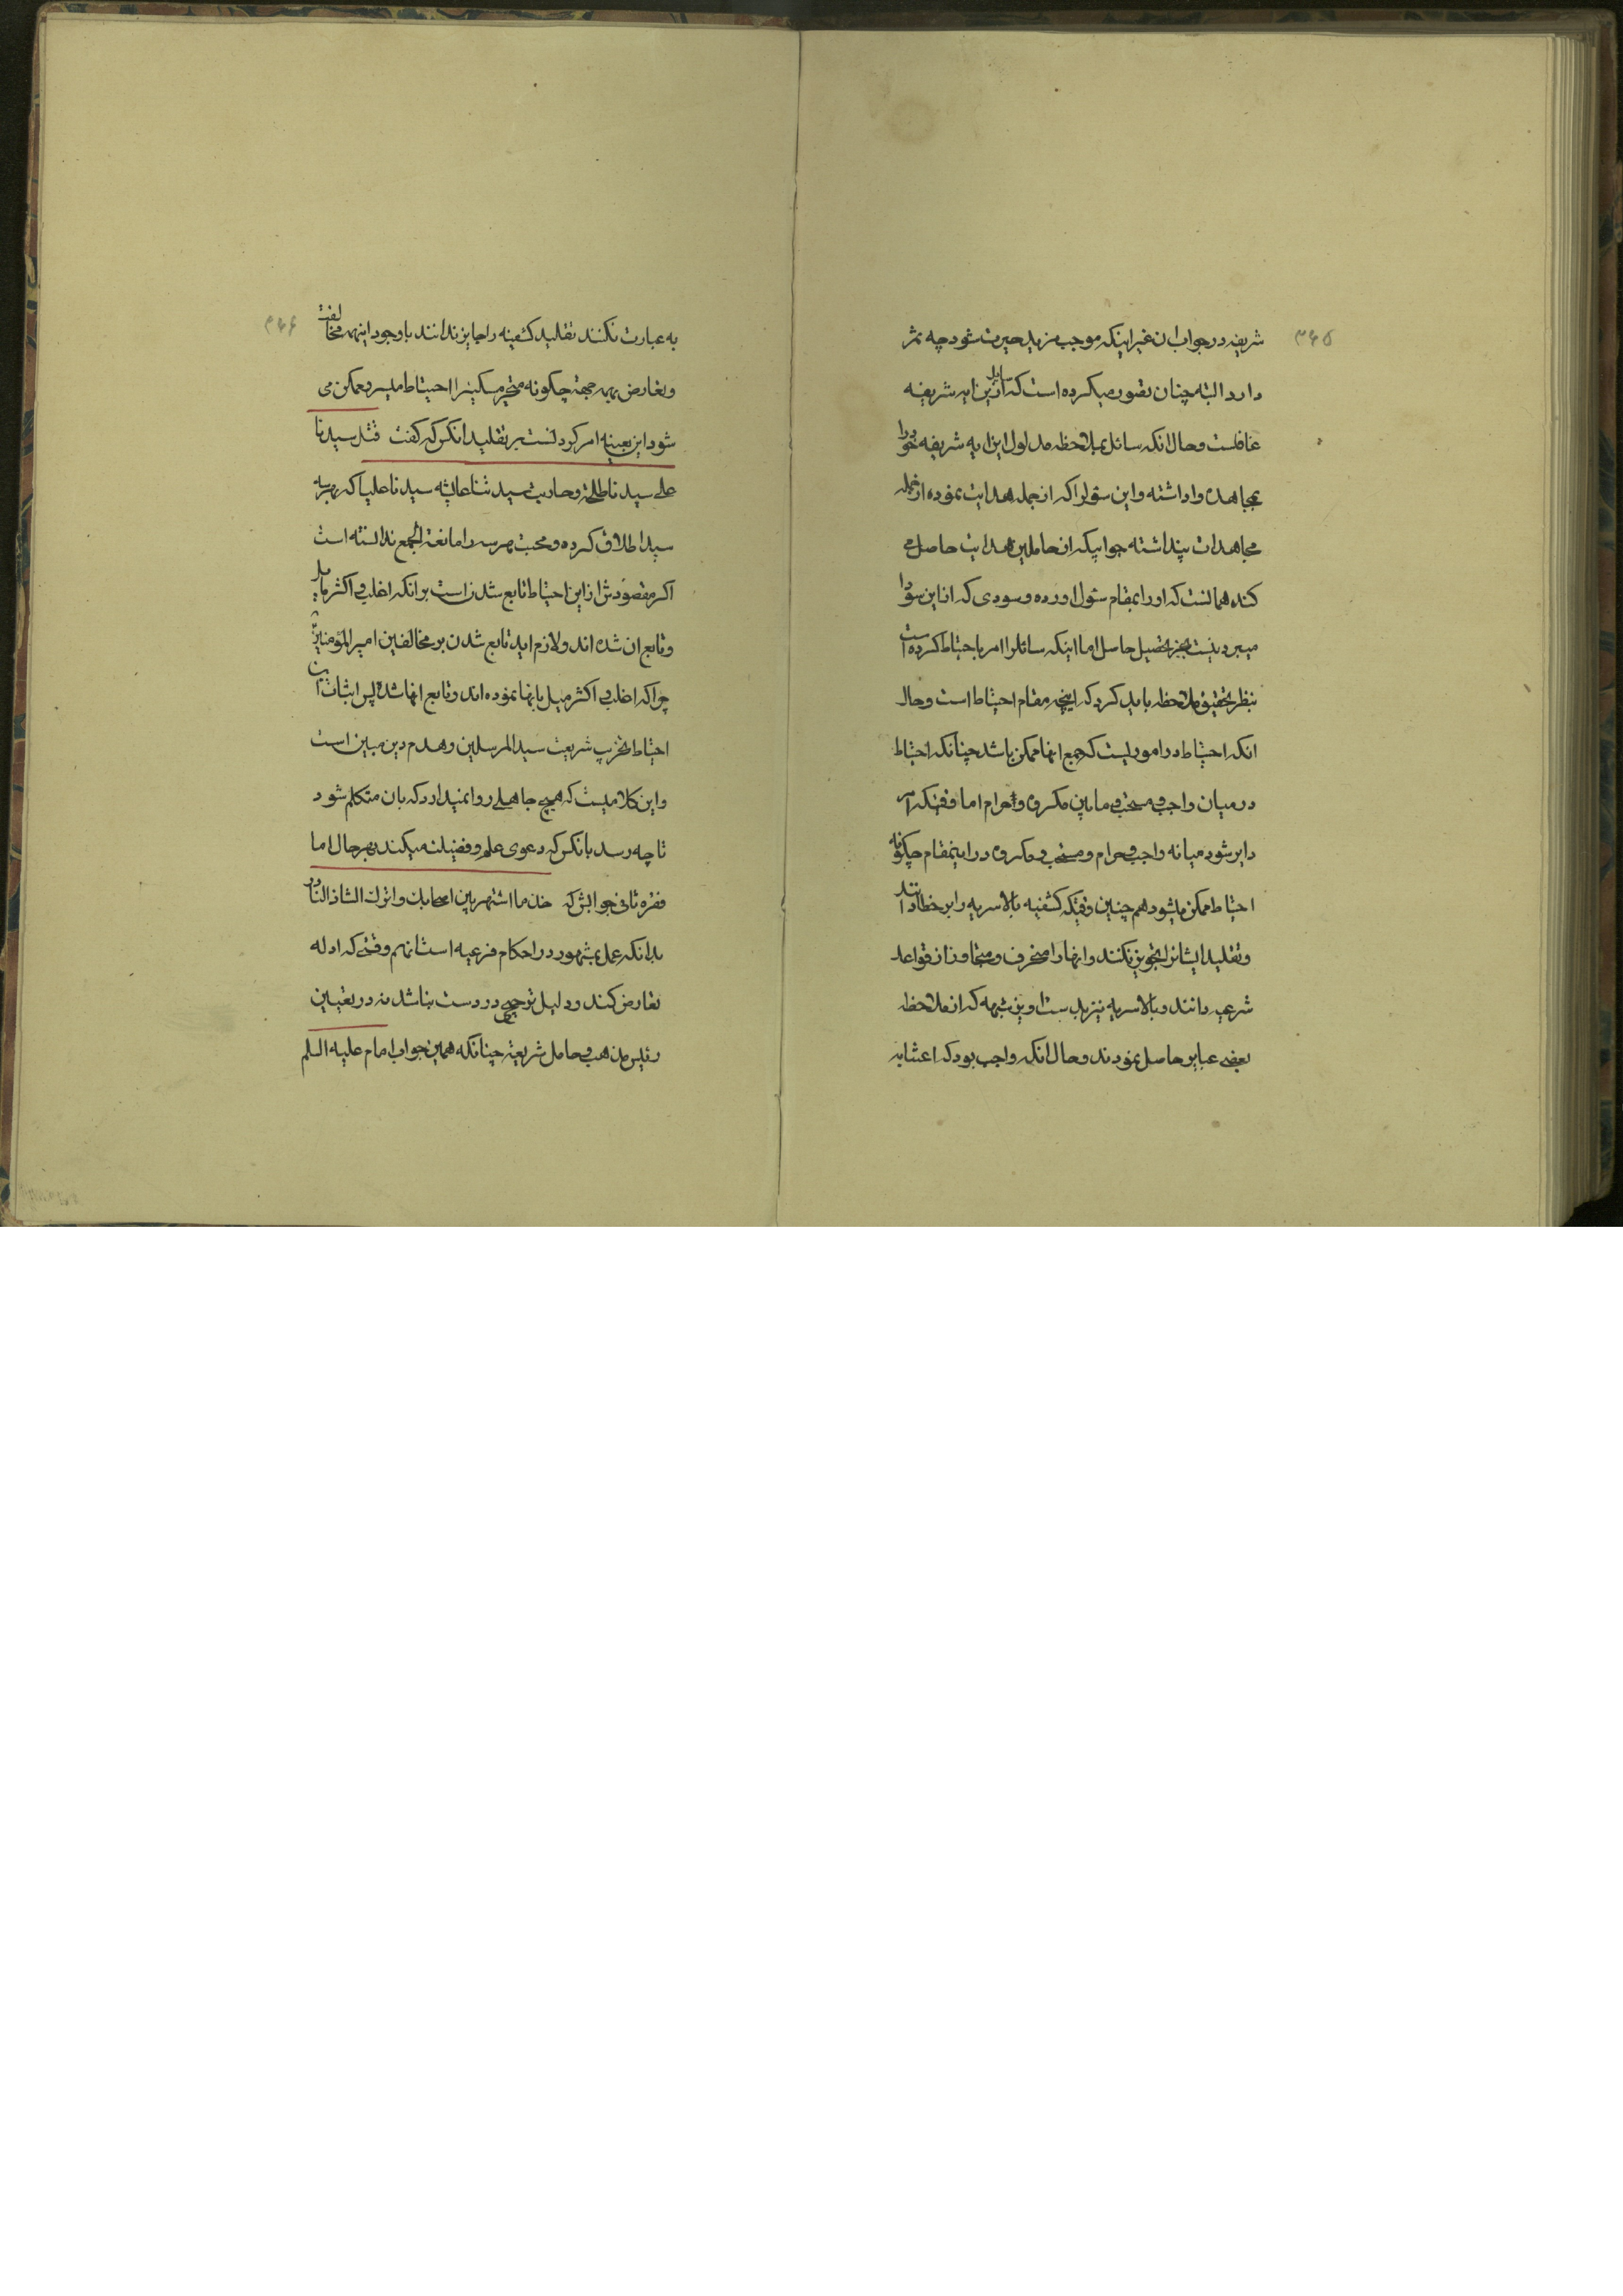 ۳۶۵
شریفه در جواب ان غیر اینکه موجب مزید حیرت شود چه ثمر
دارد البته چنان تصور میکرده است که سایل ازین ایه شریفه
غافلست و حال انکه سائل بملاحظه مدلول این ایه شریفه خود را
بمجاهده واداشته و این سئوالرا که از جمله هدایت نموده از جمله
مجاهدات پنداشته جوابیکه از حاملین هدایت حاصل می
کنده همانست که اورا بمقام سئوال اورده و سودی که از این سودا
میبرد نیست بجز تحصیل حاصل اما اینکه سائلرا امر باحتیاط کرده است
بنظر تحقیق ملاحظه باید کرد که اینچه مقام احتیاط است و حال
انکه احتیاط در اموریست که جمع انها ممکن باشد چنانکه احتیاط
در میان واجب و مستحب و مابین مکروه و حرام اما وقتیکه امر
دایر شود میانه واجب و حرام و مستحب و مکروه در اینمقام چکونه
احتیاط ممکن میشود هم چنین وقتیکه کشفیه بالاسریه را بر خطا دانند
و تقلید ایشانرا تجویز نکنند و انها را منحرف و متجاوز از قواعد
شرعیه دانند و بالاسریه نیز بدستاویز شبهه که از ملاحظه
بعضی عبایر حاصل نمودند و حال انکه واجب بود که اعتنا به
۳۶۶
به عبارت نکنند تقلید کشفیه را جایز ندانند باوجود اینهمه مخالفت
و تعارض بهمه جهة چکونه متحیر مسکینرا احتیاط میسر و ممکن می
شود این بعینه امر کردنست بر تقلید انکس که کفت قتل سیدنا
علی سیدنا طلحة و حاربت سیدتنا عایشه سیدنا علیا که بهر سه
سید اطلاق کرده و محبت هر سه را مانعة الجمع ندانسته است
اکر مقصودش از این احتیاط تابع شدن است بر انکه اغلب و اکثر مایل
و تابع ان شده اند و لازم اید تابع شدن بر مخالفین امیر المؤمنین
چرا که اغلب و اکثر میل بانها نموده اند و تابع انها شده پس اثبات این
احتیاط تخریب شریعت سید المرسلین و هدم دین مبین است
و این کلامیست که هیچ جاهلی روا نمیدارد که بان متکلم شود
تا چه رسد بانکس که دعوی علم و فضیلت میکند بهر حال اما
فقره ثانی جوابش که خذ ما اشتهر بین اصحابک و اترک الشاذ النادر
بدانکه عمل بمشهور در احکام فرعیه است انهم وقتی که ادله
تعارض کند و دلیل ترجیحی در دست نباشد نه در تعیین
رئیس مذهب و حامل شریعة چنانکه همین جواب امام علیه السلم